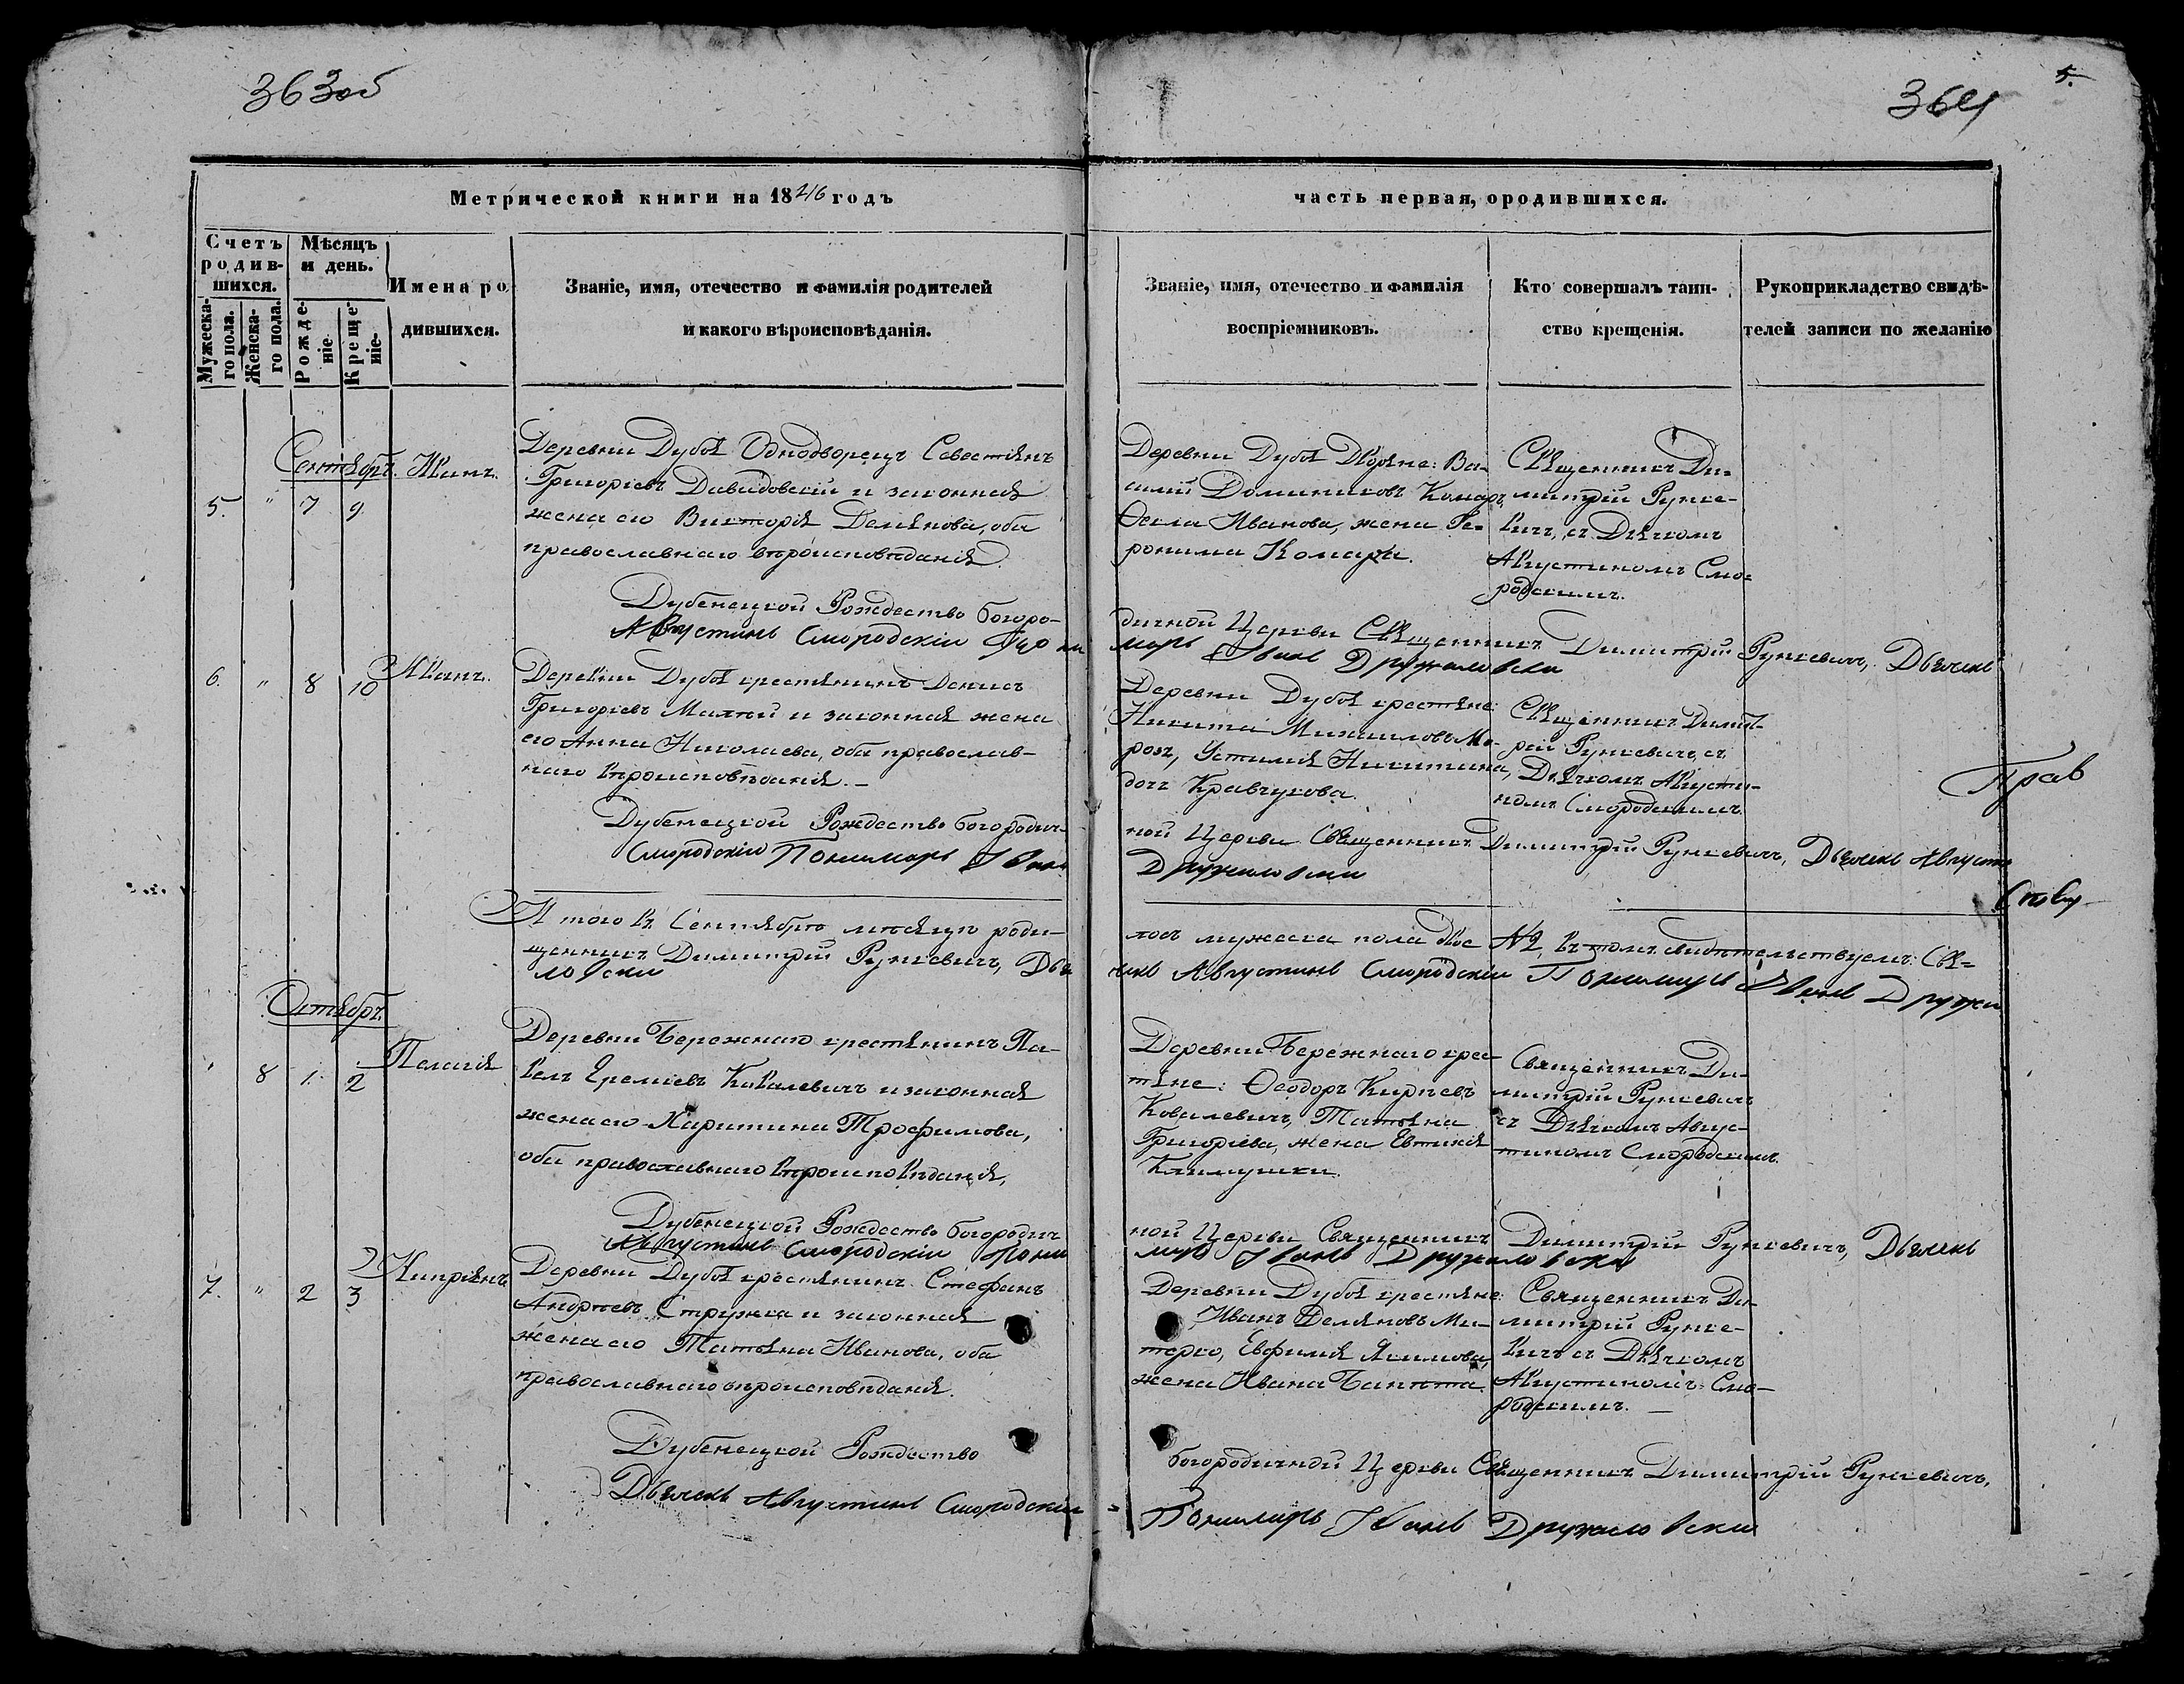 363об
364
5.
Метрической книги на 1846 годъ
часть первая, ородившихся.
Счетъ родив-шихся.
Мѣсяцъ и день.
Мужеска-го пола.
Женска-го пола.
Рожде-ніе
Креще-ніе
Имена ро
дившихся.
Званіе, имя, отечество и фамилія родителей
и какого вѣроисповѣданія.
Званіе, имя, отечество и фамилія
воспріемниковъ.
Кто совершалъ таин-
ство крещенія.
Рукоприкладство свидѣ-
телей записи по желанію
Сентябрь.
5. " 7 9
Иванъ.
Деревни Дубоя Однодворецъ Севестіянъ
Григоріевъ Давидовскій и законная
жена его Викторія Демянова, оба
православнаго вѣроисповѣданія.
Деревни Дубоя Дворяне: Ва-
силій Доминиковъ Комаръ,
Ѳекла Иванова, жена Ге-
ронима Комара.
Священникъ Ди-
митрій Рунке-
вичъ, съ Дьячкомъ
Августиномъ Смо-
родскимъ.
Дубенецкой Рождество богоро-
дичной Церкви Священникъ Димитрій Рункевичъ, Дьячекъ
Августинъ Смородскій Пономарь Иванъ Дружиловскій
6. " 8 10
Иванъ.
Деревни Дубоя крестянинъ Денисъ
Григоріевъ Малхъй и законная жена
его Анна Николаева, оба православ-
наго вѣроисповѣданія.-
Деревни Дубоя крестяне:
Никита Михаиловъ Мо-
розъ, Устимія Никитина,
дочь Кравчукова.
Священникъ Димит-
рій Рункевичъ, съ
Дьячкомъ Августи-
номъ Смородскимъ.
Прав
Дубенецкой Рождество богородич-
ной Церкви Священникъ Димитрій Рункевичъ, Дьячекъ Августинъ
Смородскій Пономарь Иванъ
Дружиловскій
А того въ Сентябрѣ мѣсяцѣ роди-
лось мужеска пола двое №2, въ томъ свидѣтельствуемъ: Свя-
щенникъ Димитрій Рункевичъ, Дья
чекъ Августинъ Смородскій Пономарь Иванъ Дружи
ловскій
Октябрь.
" 8 1. 2
Пелагія
Деревни Бережнаго крестянинъ Па-
велъ Ереміевъ Ковалевичъ и законная
жена его Харитина Трофимова,
оба православнаго вѣроисповѣданія,
Деревни Бережнаго крес-
тяне: Ѳеодоръ Кирѣевъ
Ковалевичъ, Татьяна
Григоріева, жена Евтихія
Климушки.
Священникъ Ди-
митрій Рункевичъ
съ Дьячкомъ Авгус-
тиномъ Смородскимъ.
Дубенецкой Рождество богородич
ной Церкви Священникъ Димитрій Рункевичъ, Дьячекъ
Августинъ Смородскій Поно
марь Иванъ Дружиловскій
7. " 2 3
Кипріянъ
Деревни Дубоя крестянинъ Стефанъ
Андреевъ Стружка и законная
жена его Татьяна Иванова, оба
православнаго вѣроисповѣданія.
Деревни Дубоя крестяне:
Иванъ Демяновъ Ма-
терко, Евфимія Якимова,
жена Ивана Банота.
Священникъ Ди-
митрій Рунке-
вичъ съ Дьячкомъ
Августиномъ Смо-
родскимъ. -
Дубенецкой Рождество
богородичной Церкви Священникъ Димитрій Рункевичъ,
Дьячекъ Августинъ Смородскій
Пономарь Иванъ Дружиловскій